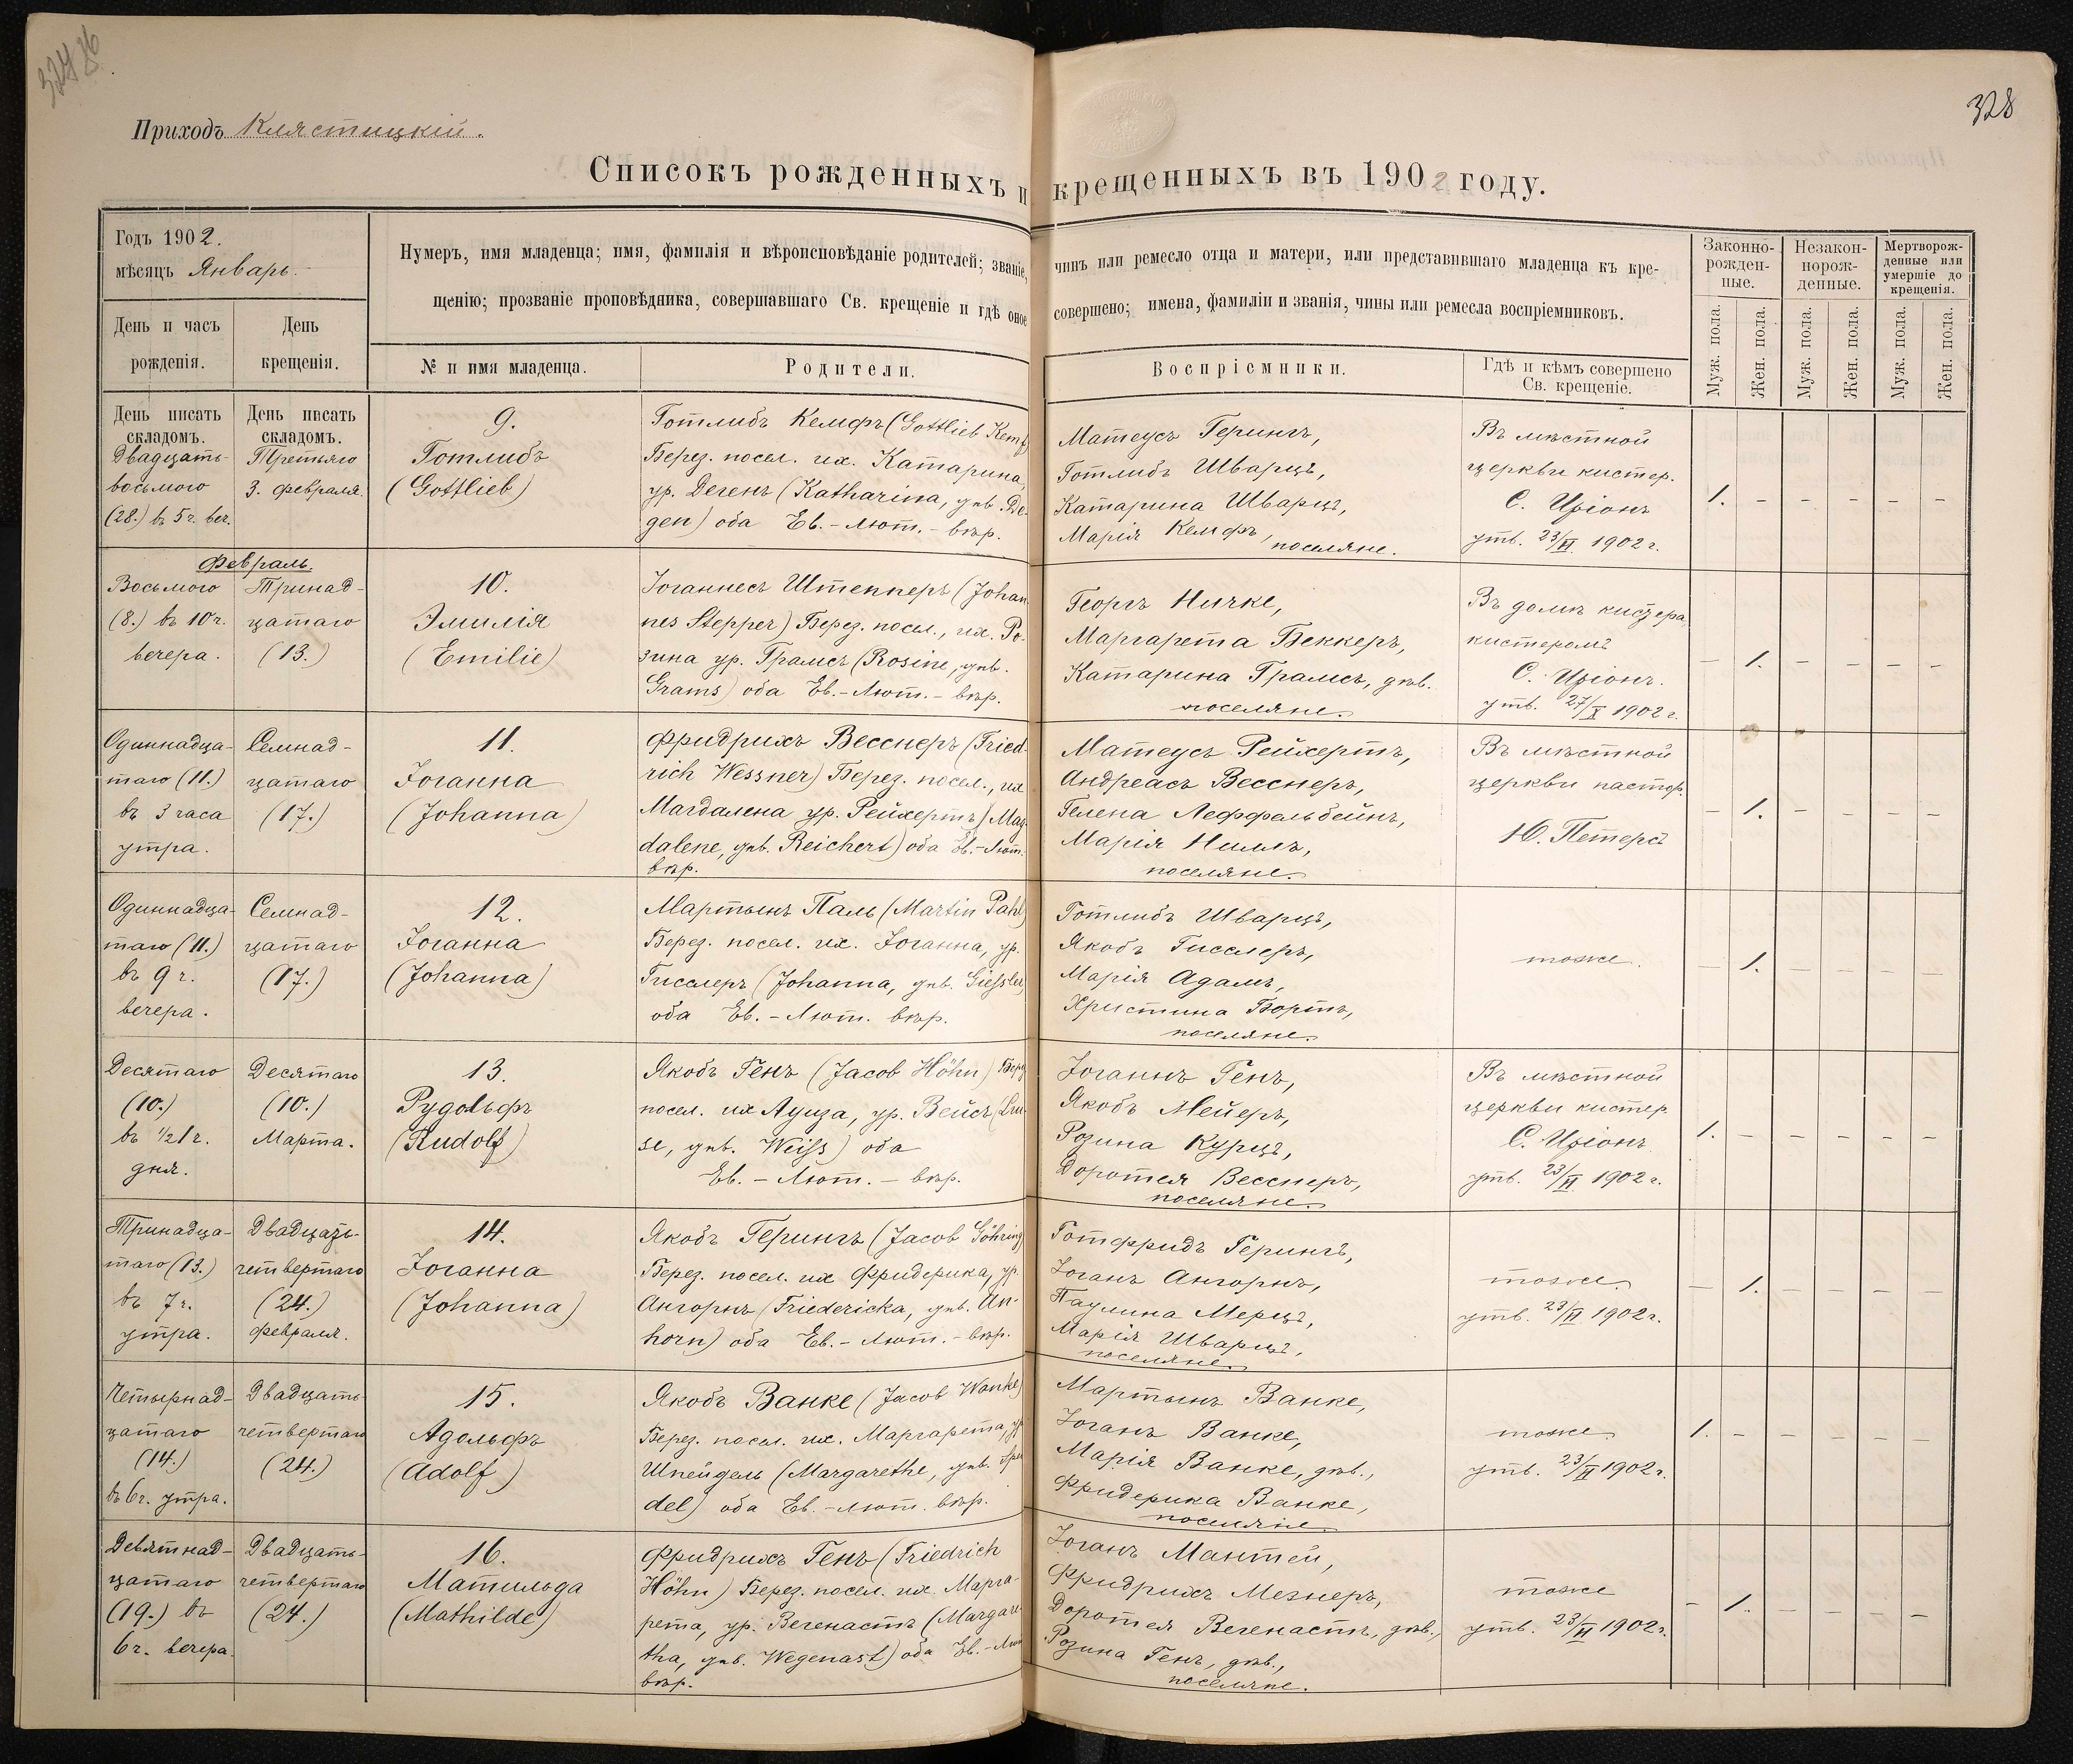 328
Приходъ Клястицкій.
Списокъ рожденныхъ и крещенныхъ въ 1902 году.
Годъ 1902.
мѣсяцъ Январь.
Нумеръ, имя младенца; имя, фамилія и вѣроисповѣданіе родителей; званіе, чинъ или ремесло отца и матери, или представившаго младенца къ кре-
щенію; прозваніе проповѣдника, совершавшаго Св. крещеніе и гдѣ оное совершено; имена, фамиліи и званія, чины или ремесла воспріемниковъ.
Законно-
рожден-
ные.
Незакон-
норож-
денные.
Мертворож-
денные или
умершіе до
крещенія.
День и часъ
рожденія.
День
крещенія.
№ и имя младенца.
Родители.
Воспріемники.
Гдѣ и кѣмъ совершено
Св. крещеніе.
Муж. пола.
Жен. пола.
Муж. пола.
Жен. пола.
Муж. пола.
Жен. пола.
День писать
складомъ.
Двадцать-
восьмого
(28.) въ 5 ч. веч.
День писать
складомъ.
Третьяго
3. февраля.
9.
Готлибъ
(Gottlieb)
Готлибъ Кемфъ (Gottlieb Kemf)
Берез. посел. их. Катарина,
ур. Дегенъ (Katharina, geb. De-
gen) оба Ев.-Лют.-вѣр.
Матеусъ Герингъ,
Готлибъ Шварцъ,
Катарина Шварцъ,
Марія Кемфъ,
поселяне.
Въ мѣстной
церкви кистер.
С. Иріонъ
утв. 23/VI 1902 г.
1. - - - - -
Февраль.
Восьмого
(8.) въ 10 ч.
вечера.
Тринад-
цатаго
(13.)
10.
Эмилія
(Emilie)
Іоганнесъ Штепперъ (Johan-
nes Stepper) Берез. посел., их. Ро-
зина ур. Грамсъ (Rosine, geb.
Grams) оба Ев.-Лют.-вѣр.
Георгъ Ничке,
Маргарета Беккеръ,
Катарина Грамсъ, дѣв.
поселяне.
Въ домѣ кистера,
кистеромъ
С. Иріонъ.
утв. 27/X 1902 г.
- 1. - - - -
Одиннадца-
таго (11.)
въ 3 часа
утра.
Семнад-
цатаго
(17.)
11.
Іоганна
(Johanna)
Фридрихъ Весснеръ (Fried-
rich Wessner) Берез. посел., их
Магдалена ур. Рейхертъ (Mag-
dalene, geb. Reichert) оба Ев.-Лют.
вѣр.
Матеусъ Рейхертъ,
Андреасъ Весснеръ,
Гелена Леффельбейнъ,
Марія Нилль,
поселяне.
Въ мѣстной
церкви пастор.
Ю. Петерсъ
- 1. - - - -
Одиннадца-
таго (11.)
въ 9 ч.
вечера.
Семнад-
цатаго
(17.)
12.
Іоганна
(Johanna)
Мартынъ Паль (Martin Pahl)
Берез. посел. их. Іоганна, ур.
Гисслеръ (Johanna, geb. Giessler)
оба Ев.-Лют. вѣр.
Готлибъ Шварцъ,
Якобъ Гисслеръ,
Марія Адамъ,
Христина Бортъ,
поселяне.
тоже.
- 1. - - - -
Десятаго
(10.)
въ 1/2 1 ч.
дня.
Десятаго
(10.)
Марта.
13.
Рудольфъ
(Rudolf)
Якобъ Генъ (Jacob Höhn) Берез.
посел. их Луиза, ур. Вейсъ (Lui-
se, geb. Weiss) оба
Ев.-Лют.-вѣр.
Іоганнъ Генъ,
Якобъ Мейеръ,
Розина Курцъ,
Доротея Весснеръ,
поселяне.
Въ мѣстной
церкви кистер.
С. Иріонъ
утв. 23/VI 1902 г.
1. - - - - -
Тринадца-
таго (13.)
въ 7 ч.
утра.
Двадцать-
четвертаго
(24.)
февраля.
14.
Іоганна
(Johanna)
Якобъ Герингъ (Jacob Göhring)
Берез. посел. их Фридерика, ур.
Ангорнъ (Friedericka, geb. An-
horn) оба Ев.-Лют.-вѣр.
Готфридъ Герингъ,
Іоганъ Ангорнъ,
Паулина Мерцъ,
Марія Шварцъ,
поселяне.
тоже
утв. 23/VI 1902 г.
- 1. - - - -
Четырнад-
цатаго
(14.)
въ 6 ч. утра.
Двадцать-
четвертаго
(24.)
15.
Адольфъ
(Adolf)
Якобъ Ванке (Jacob Wanke)
Берез. посел. их. Маргарета, ур.
Шпейдель (Margarethe, geb. Spei-
del) оба Ев.-лют. вѣр.
Мартынъ Ванке,
Іоганъ Ванке,
Марія Ванке, дѣв.,
Фридерика Ванке,
поселяне.
тоже
утв. 23/VI 1902 г.
1. - - - - -
Девятнад-
цатаго
(19.) въ
6 ч. вечера.
Двадцать-
четвертаго
(24.)
16.
Матильда
(Mathilde)
Фридрихъ Генъ (Friedrich
Höhn) Берез. посел. их. Марга-
рета, ур. Вегенастъ (Margare-
tha, geb. Wegenast) оба Ев.-Лют
вѣр.
Іоганъ Мантей,
Фридрихъ Мезнеръ,
Доротея Вегенастъ, дѣв.,
Розина Генъ, дѣв.,
поселяне.
тоже
утв. 23/VI 1902 г.
- 1. - - - -